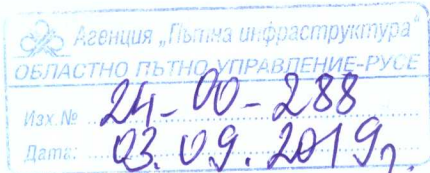 Агенция „Пътна инфраструктура“
ОБЛАСТНО ПЪТНО УПРАВЛЕНИЕ-РУСЕ
Изх. № 24-00-288
Дата: 03.09.2019г.